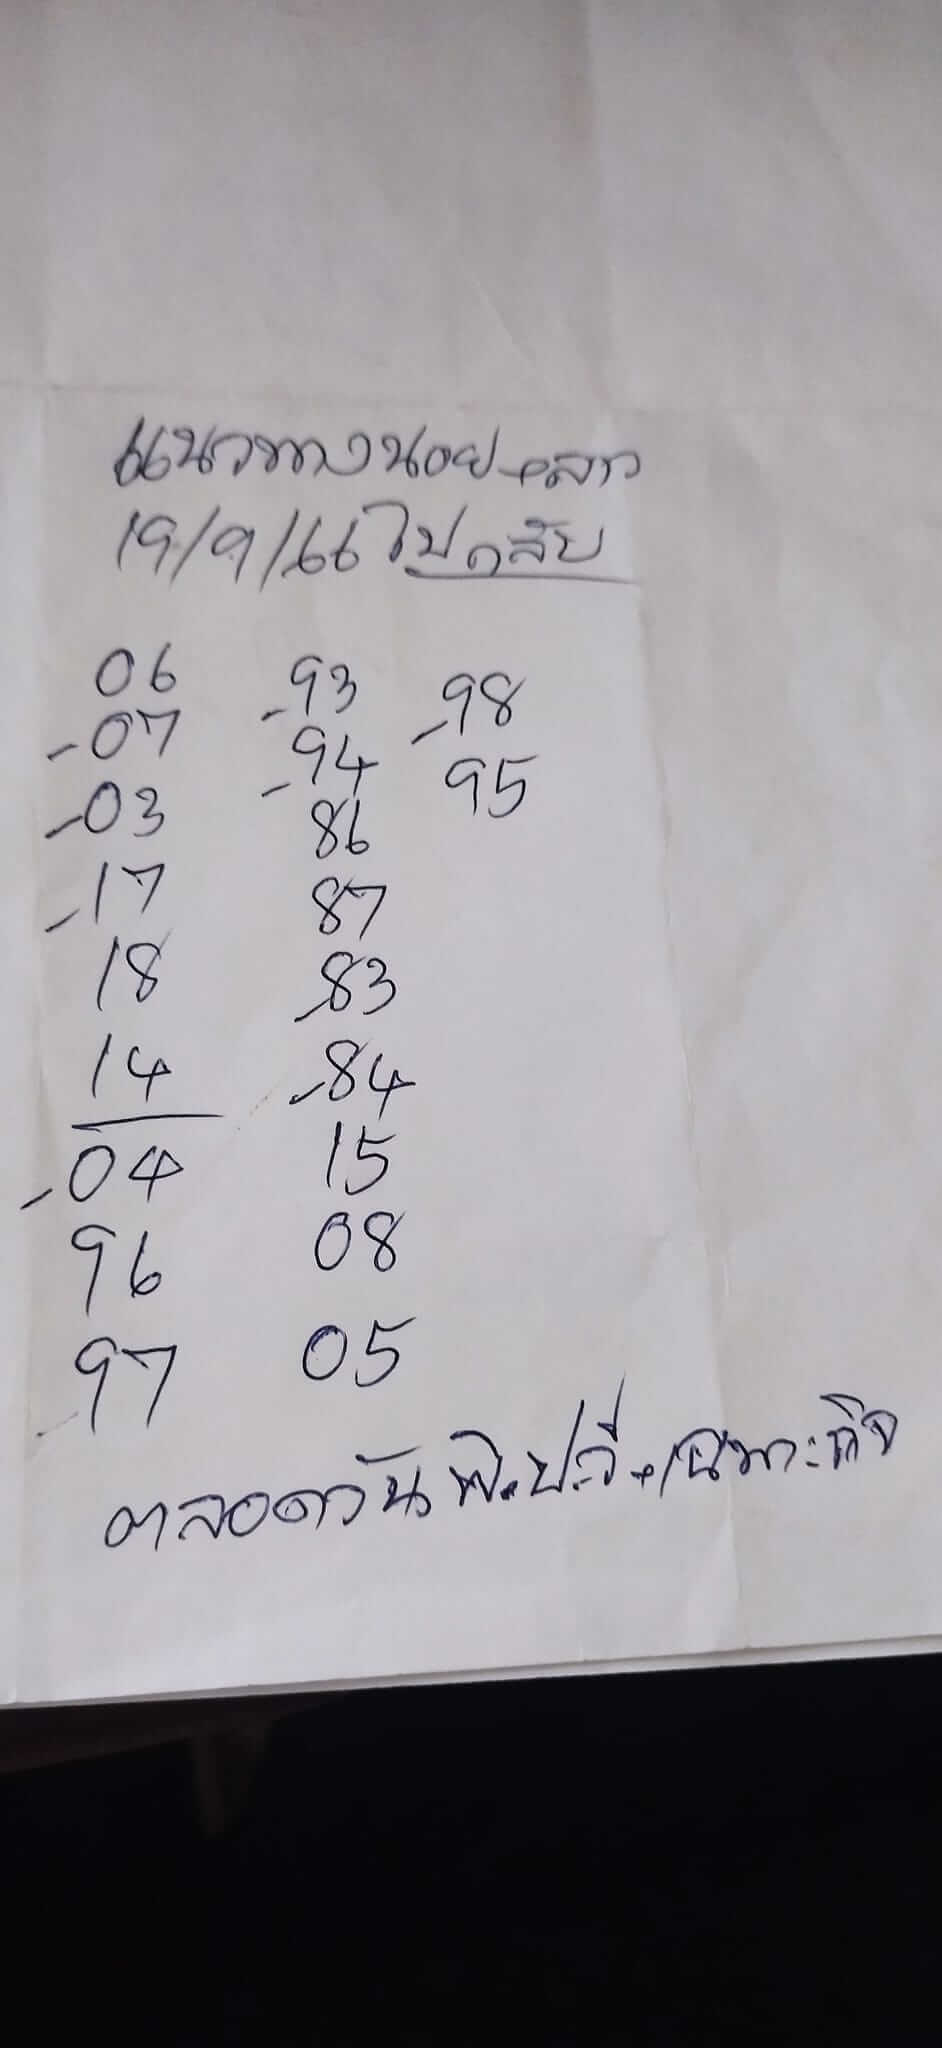 แนวทางนอย+ลาว
19/9/66 ไปกลับ
06 -93 -98
-07 -94 95
-03 86
-17 87
18 -83
14 -84
-04 15
96 08
97 05
ตลอดวัน